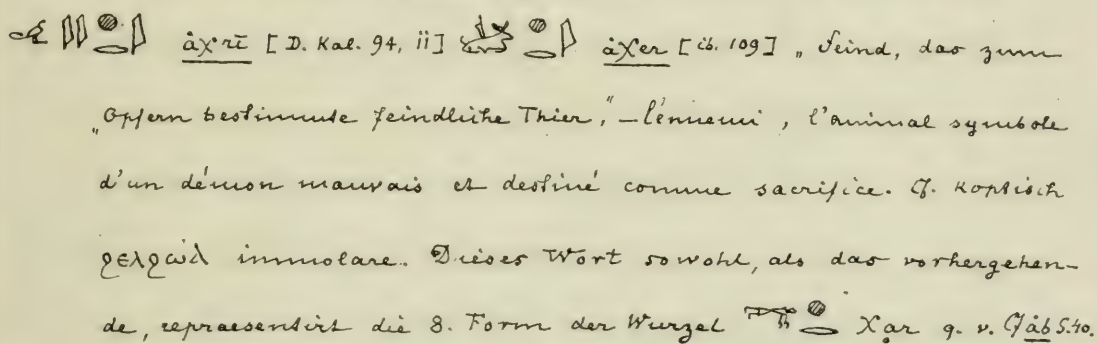 åχrī [D. Kal. 94, ii] åχer [ib. 109] „Feind, das zum
„Opfern bestimmte feindliche Thier," – l'ennemi, l'animal symbole
d'un démon mauvais et destiné comme sacrifice. Cf. Koptisch
ϩⲉⲗϩⲱⲗ immolare. Dieses Wort sowohl, als das vorhergehen-
de, repraesentirt die 8. Form der Wurzel χar q. v. Cf åb S. 40.